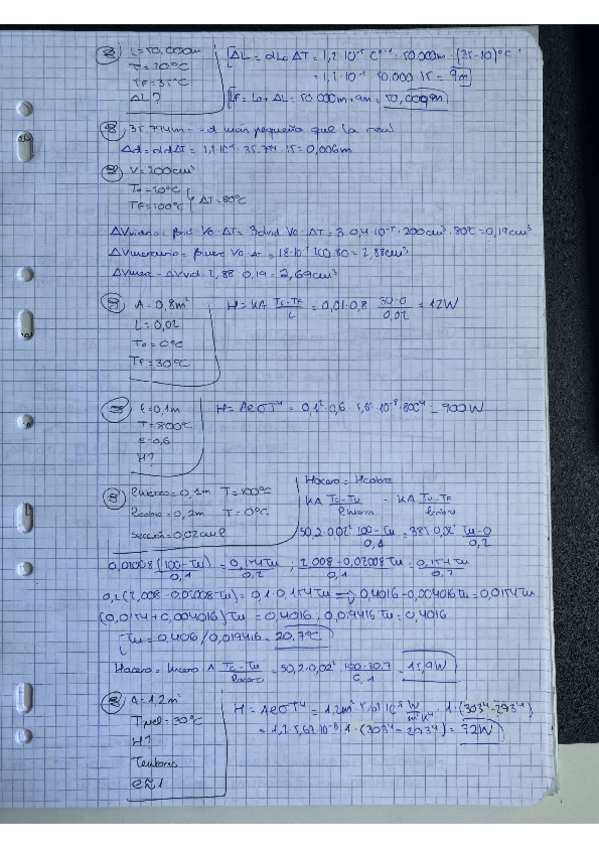 L=50,000m
T=20°C
TF=35°C
ΔL?
ΔL = αL₀ΔT = 1,2·10⁻⁵ C°⁻¹ · 50.000m · (35-20)°C
= 1,2·10⁻⁵ · 50.000·15 = 9m
LF = L₀ + ΔL = 50,000m + 9m = 50,009m
35.794m = -d más pequeña que la real
Δd = αdΔT = 1,2·10⁻⁵ · 35.794 · 15 = 0,006m
V=200cm³
T₀=20°C
TF=100°C
ΔT=80°C
ΔVvidrio = βvid V₀ ΔT = 3αvid V₀ · ΔT = 3·0,4·10⁻⁵·200cm³·80°C = 0,19cm³
ΔVmercurio = βmerc V₀ ΔT = 18·10⁻⁵ · 200·80 = 2,88cm³
ΔVmerc - ΔVvid = 2,88 - 0,19 = 2,69cm³
A=0,8m²
L=0,02
T₀=0°C
TF=30°C
H = KA (TC-TF)/L = 0,01·0,8 (30-0)/0,02 = 12W
l=0,1m
T=800°C
e=0,6
H?
H = AeσT⁴ = 0,1²·0,6·5,6·10⁻⁸·800⁴ = 900W
lacero=0,1m T=100°C
lcobre=0,2m T=0°C
sección=0,02
Hacero = Hcobre
KA (TC-Tu)/lacero = KA (Tu-TF)/lcobre
50,2·0,02² (100-Tu)/0,1 = 385·0,02² (Tu-0)/0,2
0,02008(100-Tu)/0,1 = 0,154Tu/0,2 ; (2,008-0,02008Tu)/0,1 = 0,154Tu/0,2
0,2(2,008-0,02008Tu) = 0,1·0,154Tu => 0,4016-0,004016Tu = 0,0154Tu
(0,0154+0,004016)Tu = 0,4016 ; 0,019416Tu = 0,4016
Tu = 0,406/0,019416 = 20,7°C
Hacero = Kacero A (TC-Tu)/lacero = 50,2·0,02² (100-20,7)/0,1 = 15,9W
A=1,2m²
Tpiel=30°C
H?
e≈1
H = AeσT⁴ = 1,2m² 5,67·10⁻⁸ W/m²K⁴ · 1·(303⁴-293⁴)
= 1,2·5,67·10⁻⁸·1·(303⁴-293⁴) = 72W